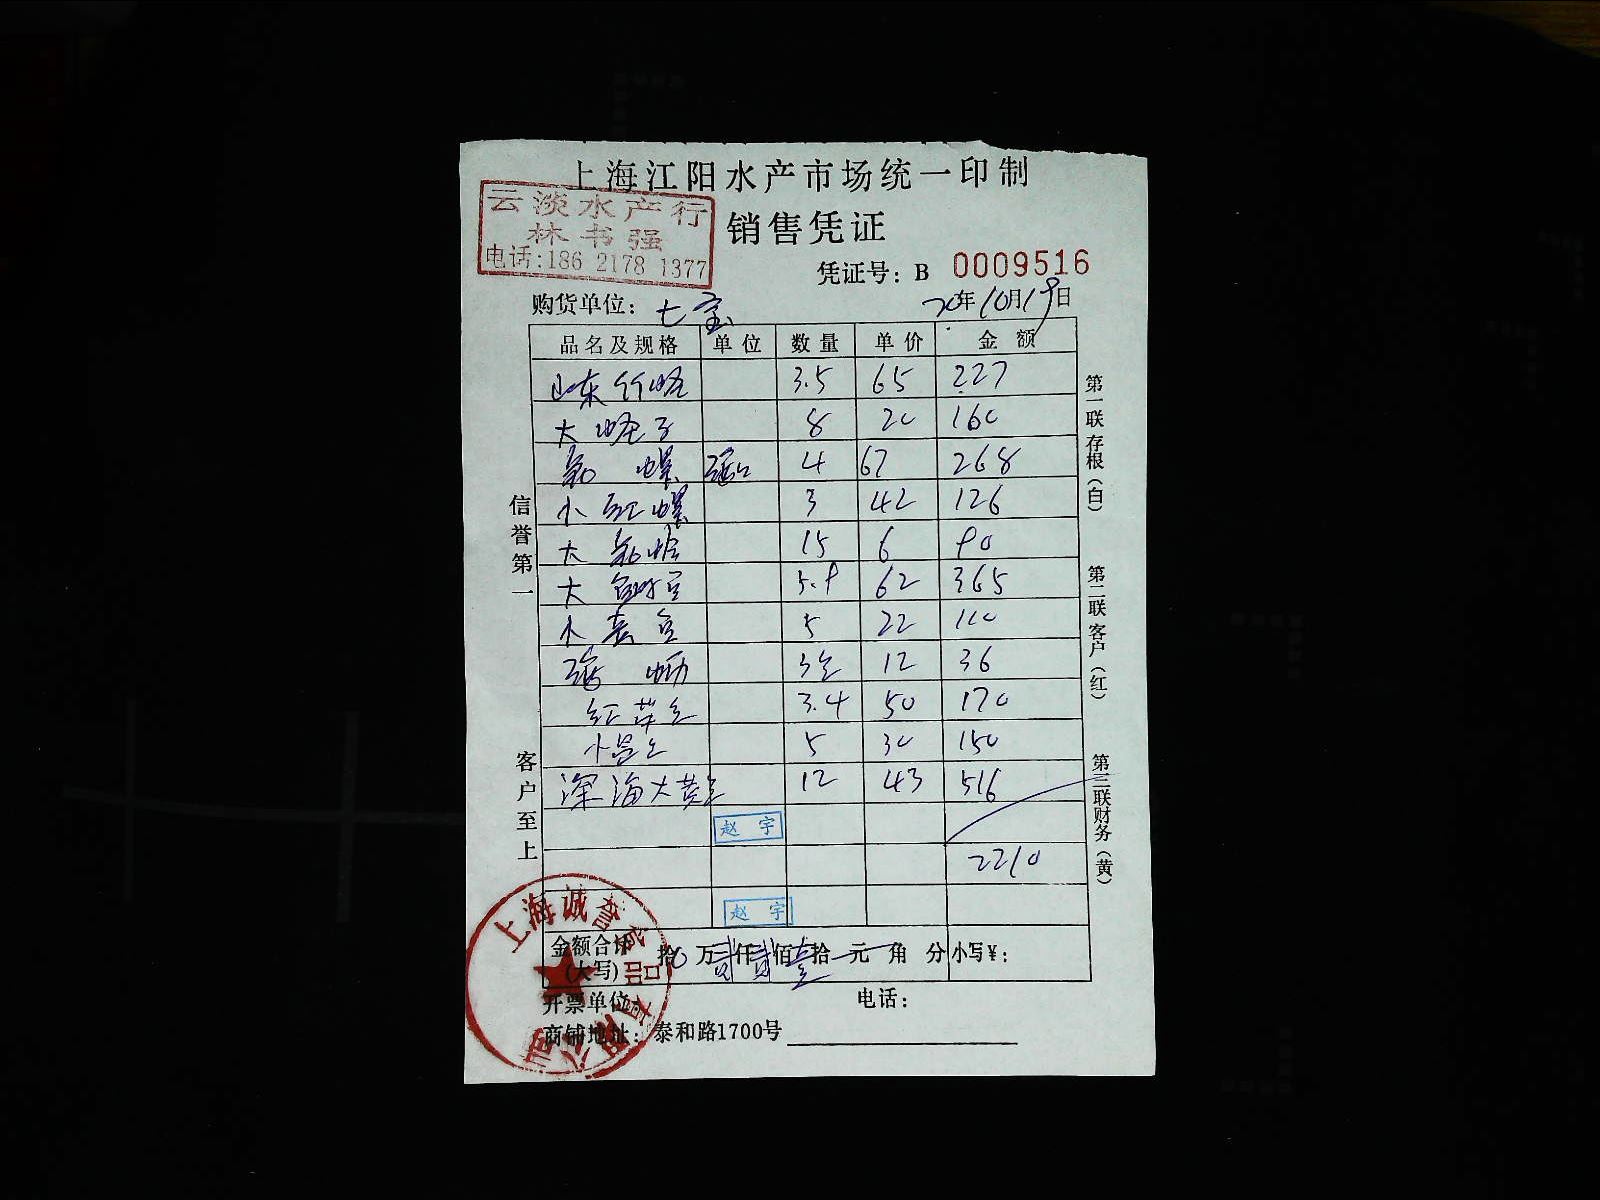 上海江阳水产市场统一印制
云淡水产行
林书强
电话:186 2178 1377
销售凭证
凭证号: B 0009516
购货单位: 七宝 20年10月19日
品名及规格 单位 数量 单价 金额
山东竹蛏 3.5 65 227
大蛏子 8 20 160
螺 4 67 268
小红螺 3 42 126
大 蛤 15 6 90
大 5.9 62 365
小 5 22 110
3 12 36
红 3.4 50 170
小 5 30 150
深海大黄 12 43 516
赵宇
2210
赵宇
金额合计(大写) 拾0万贰仟贰佰壹拾元角分 小写¥:
开票单位: 电话:
商铺地址: 泰和路1700号
信誉第一
客户至上
第一联存根(白)
第二联客户(红)
第三联财务(黄)
上海诚誉食品有限公司